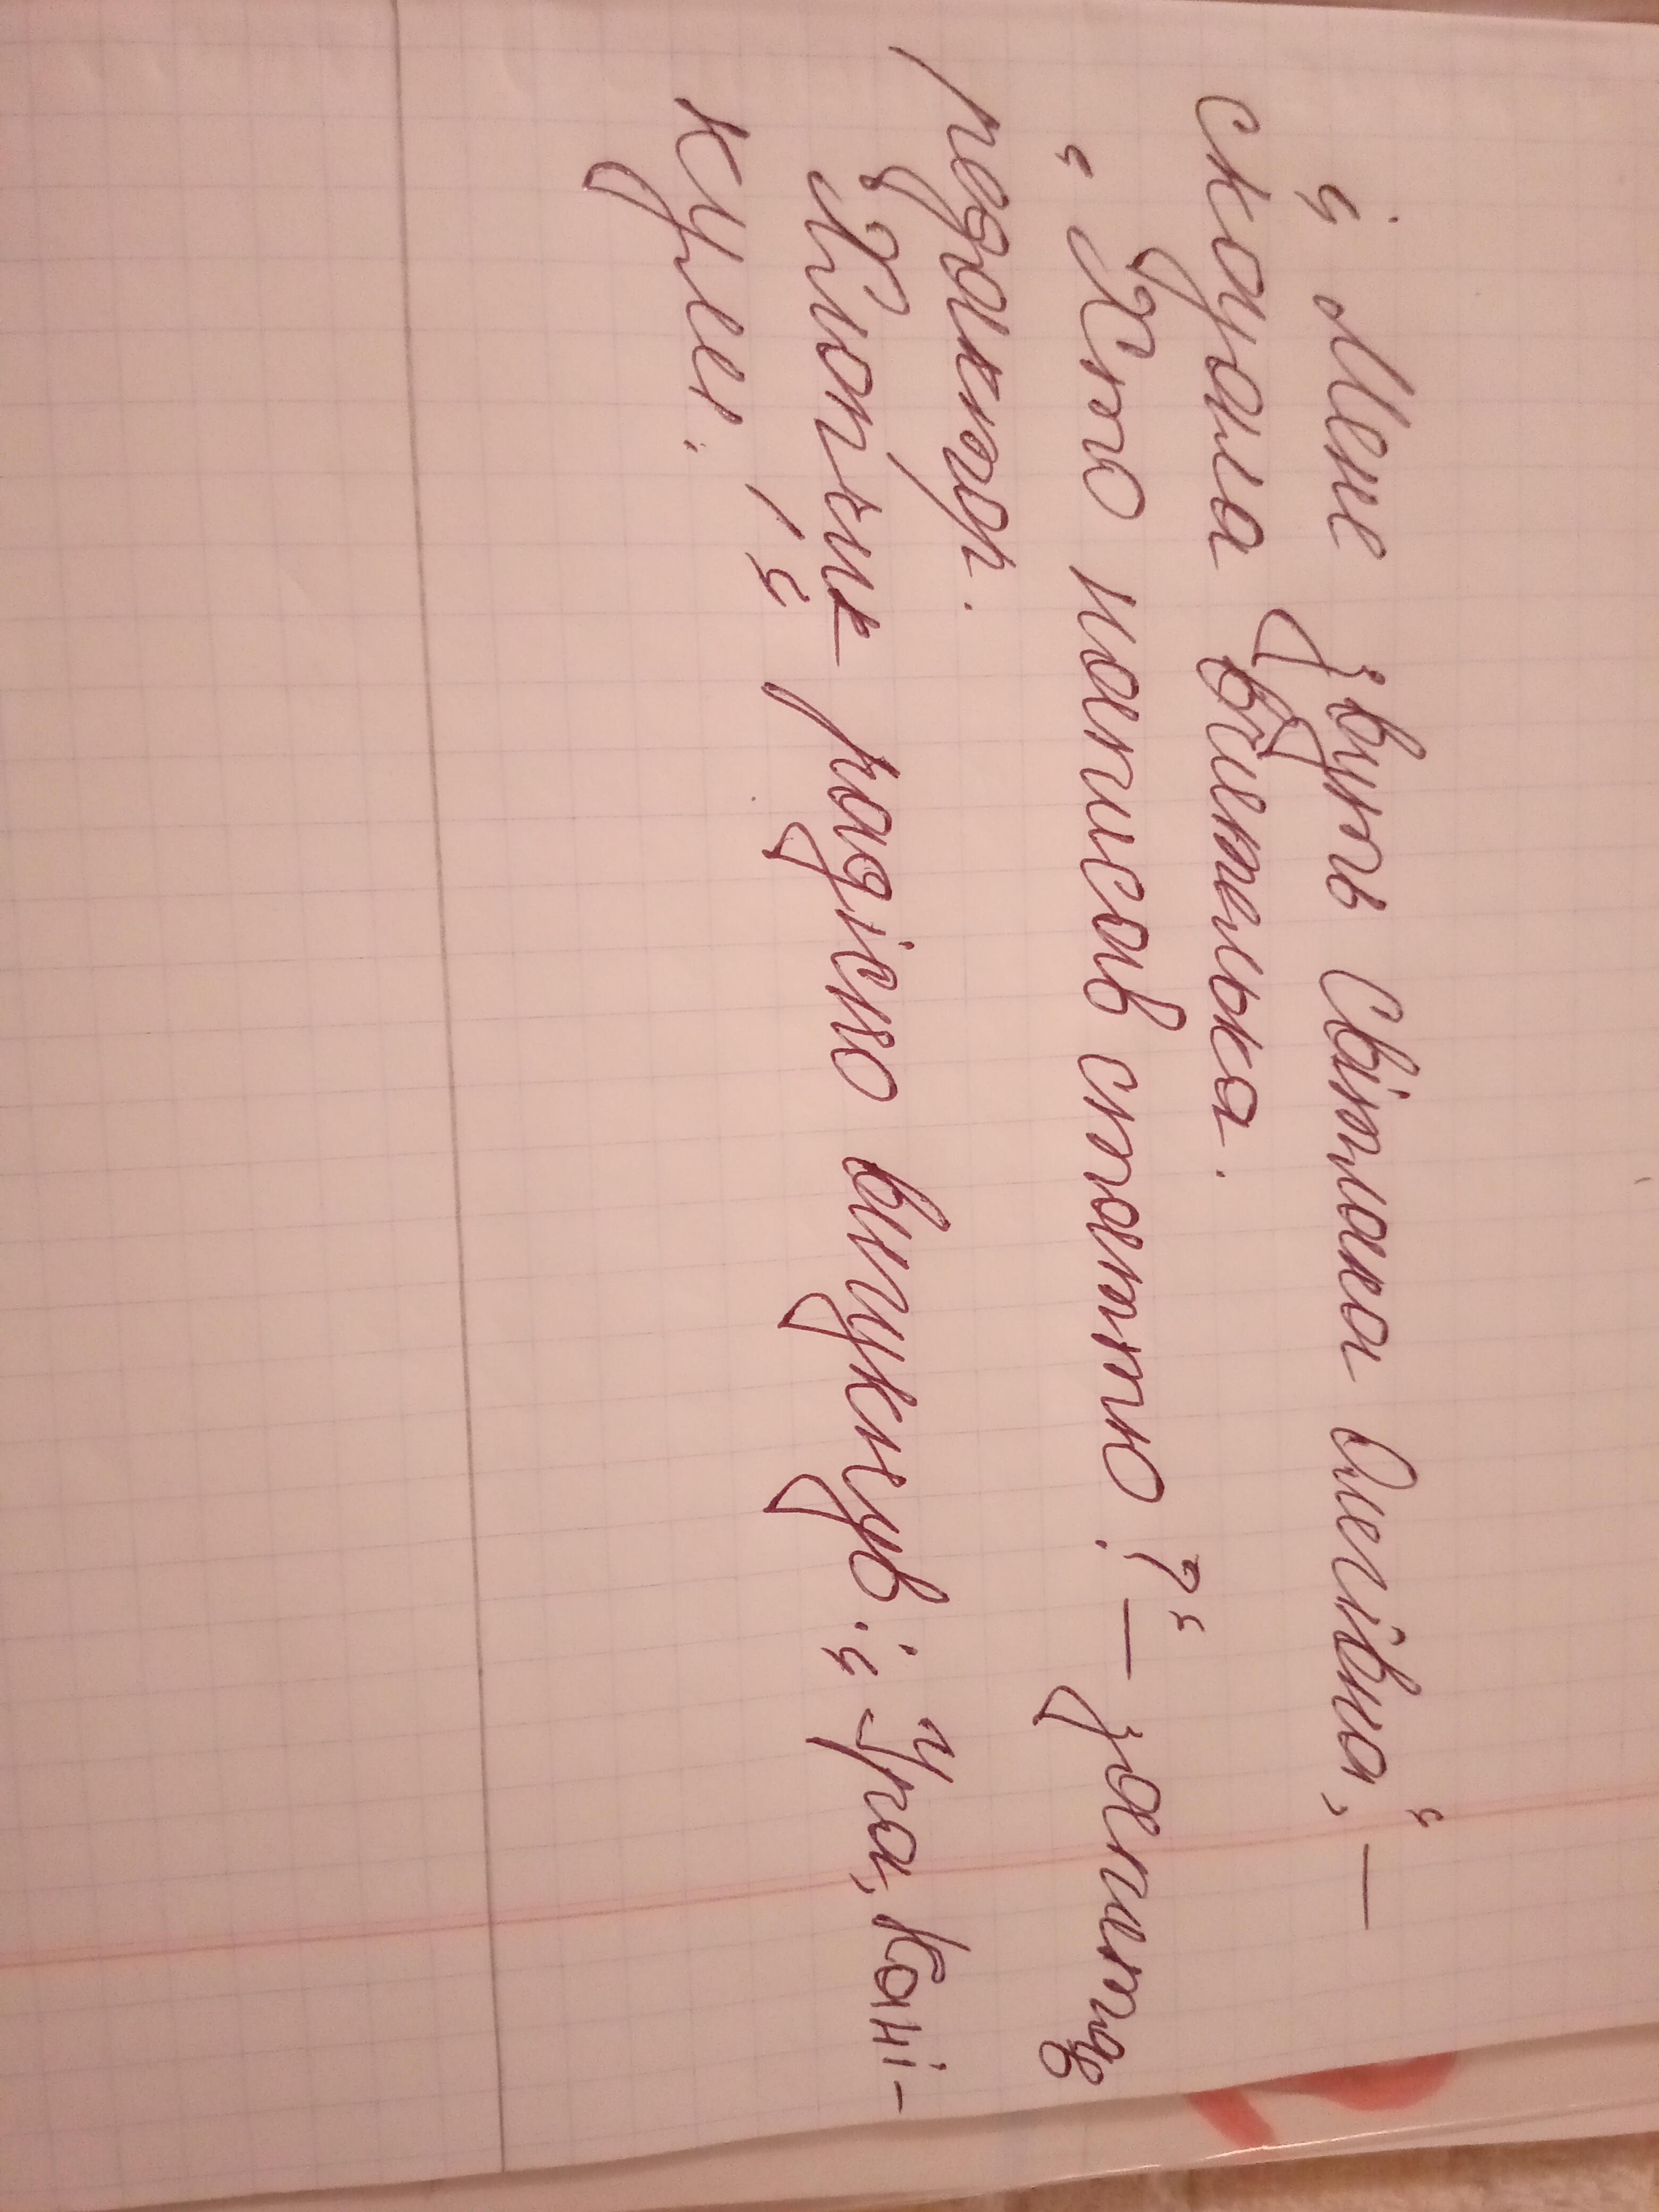 „Мене звуть Світлана Олегівна,“ –
сказала вчителька.
„Хто написав статтю?“ – запитав
редактор.
Хлопчик радісно вигукнув: „Ура, кані-
кули!“